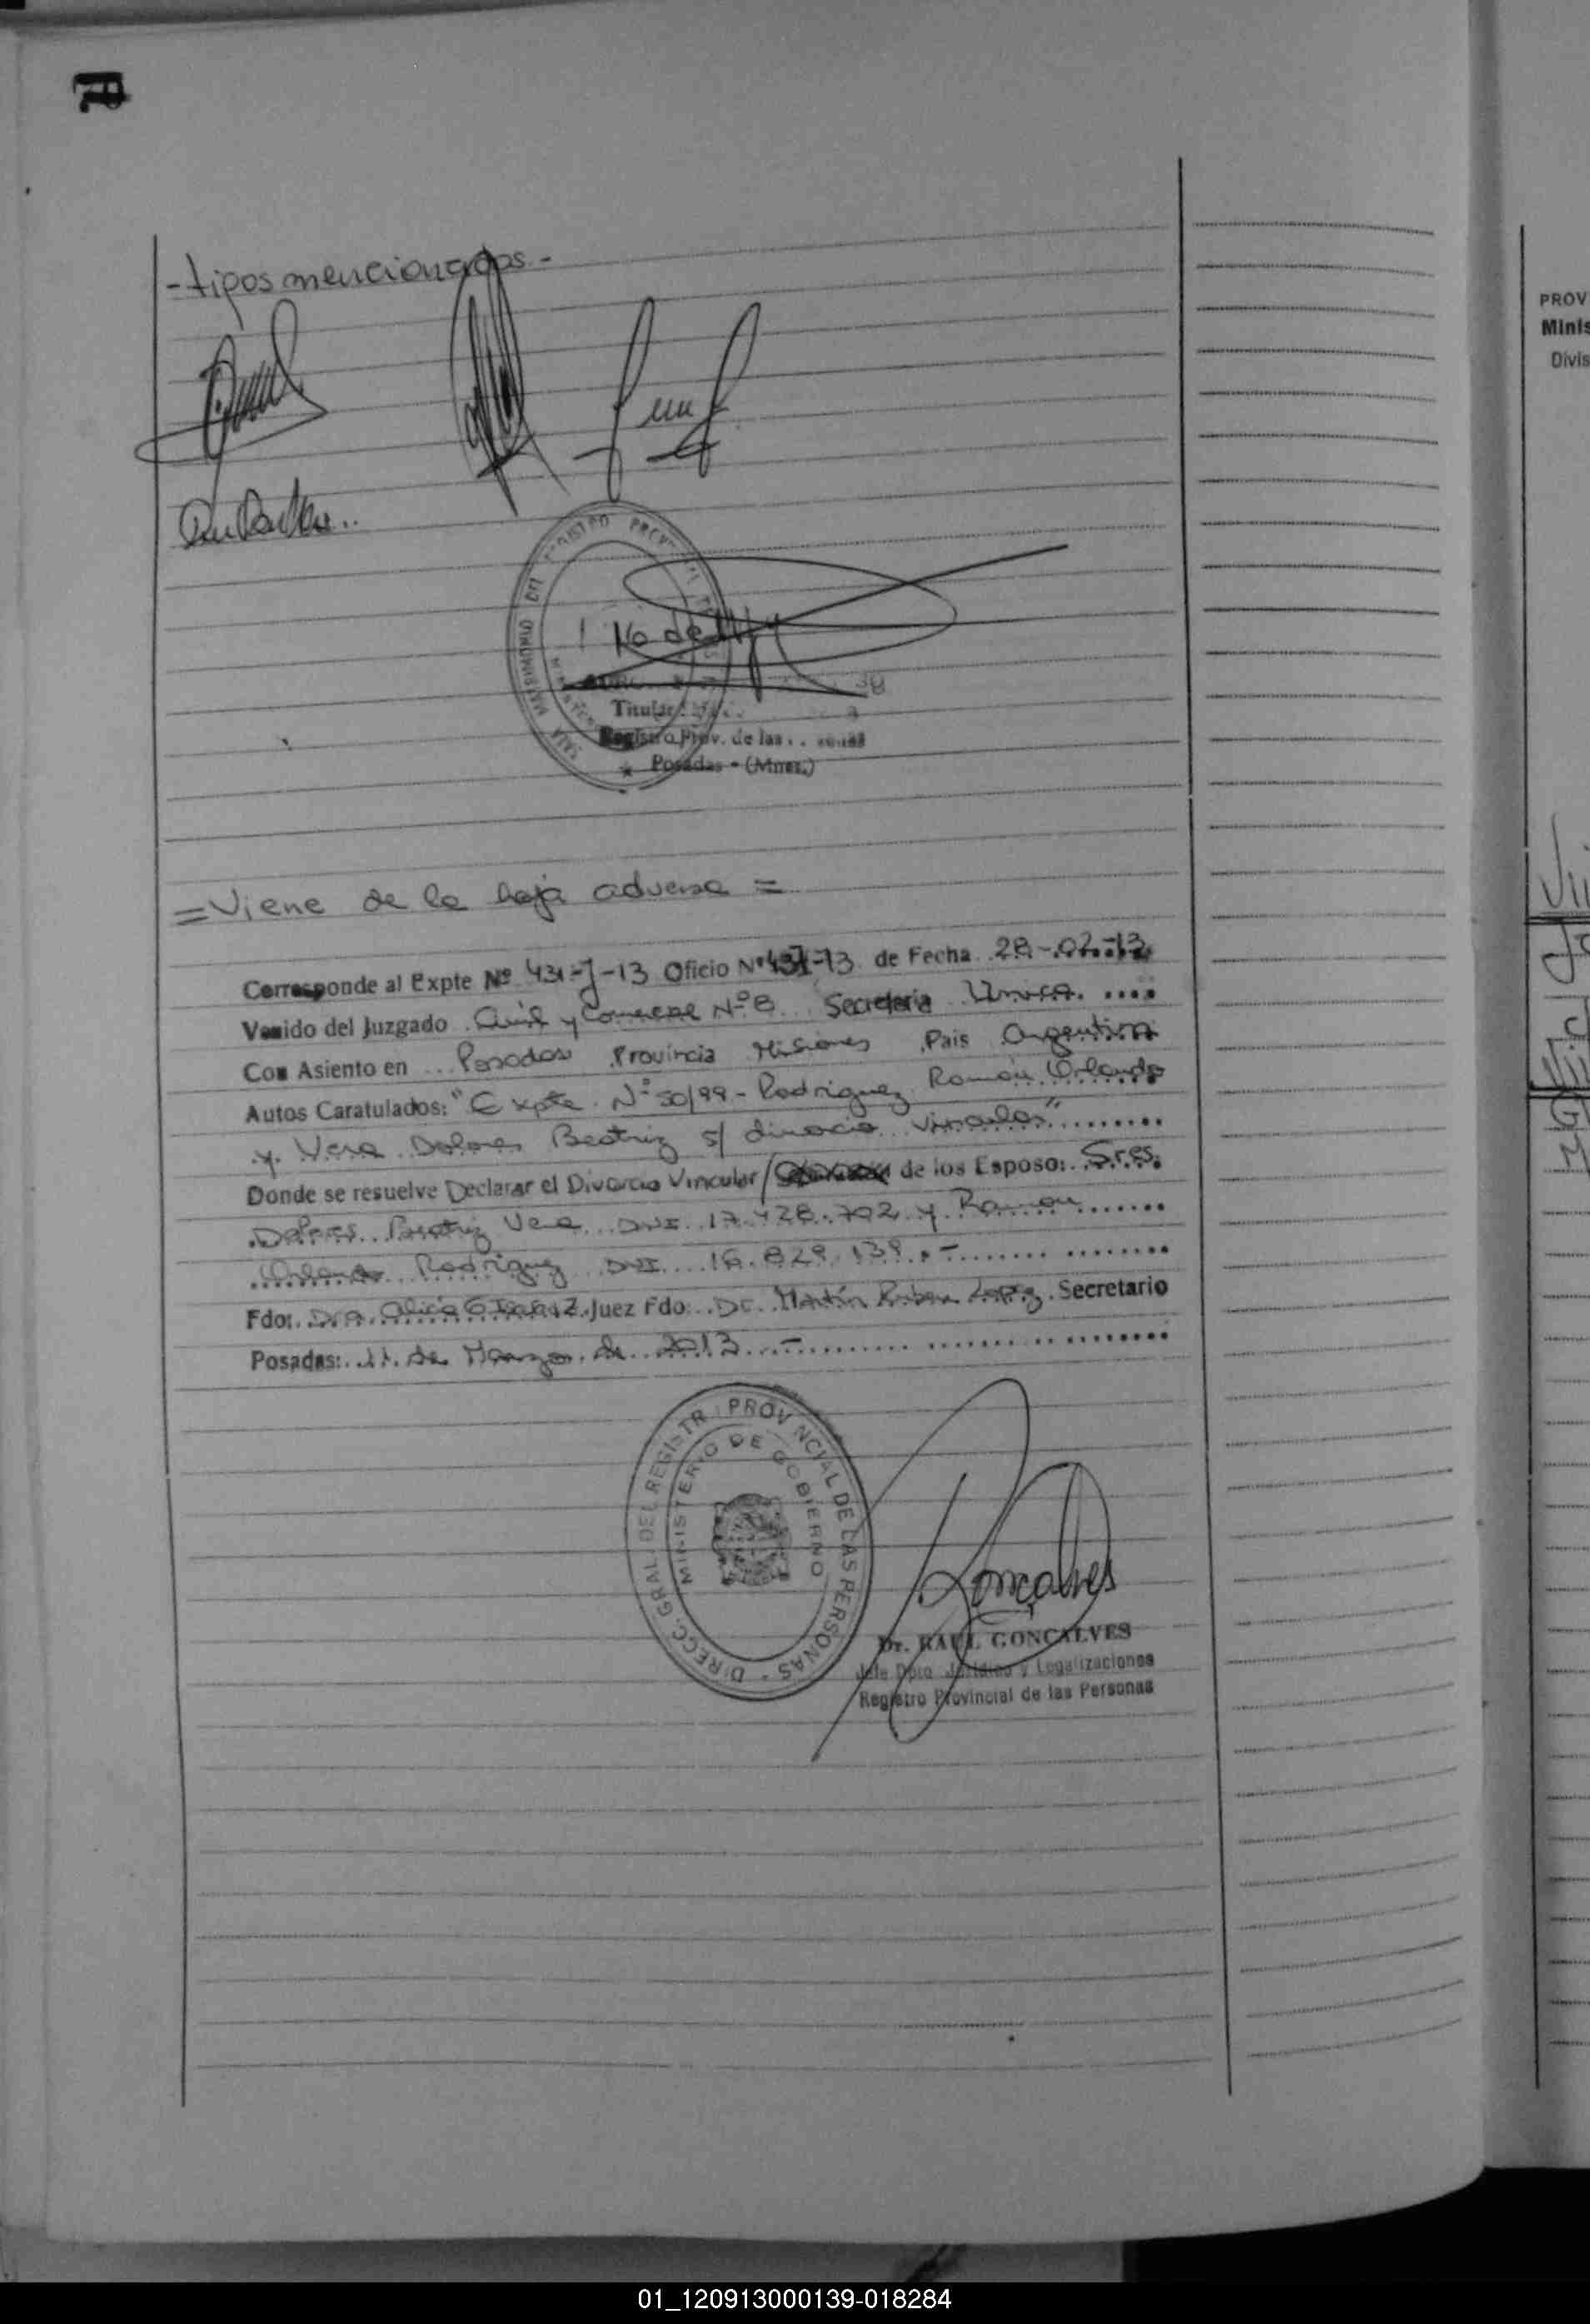 - tipos mencionados -
Titular
Registro Prov. de las
Posadas - (Mnes.)
= Viene de la hoja adversa =
Corresponde al Expte Nº 431-J-13 Oficio Nº 431-13 de Fecha 28-02-13
Venido del Juzgado Civil y Comercial Nº 8 Secretaria Unica
Con Asiento en Posadas Provincia Misiones Pais Argentina
Autos Caratulados: "Expte. Nº 50/99 - Rodriguez Ramón Orlando
y Vera Dolores Beatriz s/ divorcio vincular"
Donde se resuelve Declarar el Divorcio Vincular/ de los Esposo: Sres.
Dolores Beatriz Vera DNI 17.428.702 y Ramon
Orlando Rodriguez DNI 16.829.139.-
Fdo: Dra Alicia Juez Fdo: Dr. Martín Ruben Lopez Secretario
Posadas: 11 de Marzo de 2013.-
DIRECC. GRAL. DEL REGISTR PROVINCIAL DE LAS PERSONAS
MINISTERIO DE GOBIERNO
Gonçalves
Dr. RAUL GONÇALVES
Jefe Dpto. Jurídico y Legalizaciones
Registro Provincial de las Personas
PROV
Minis
Divis
01_120913000139-018284